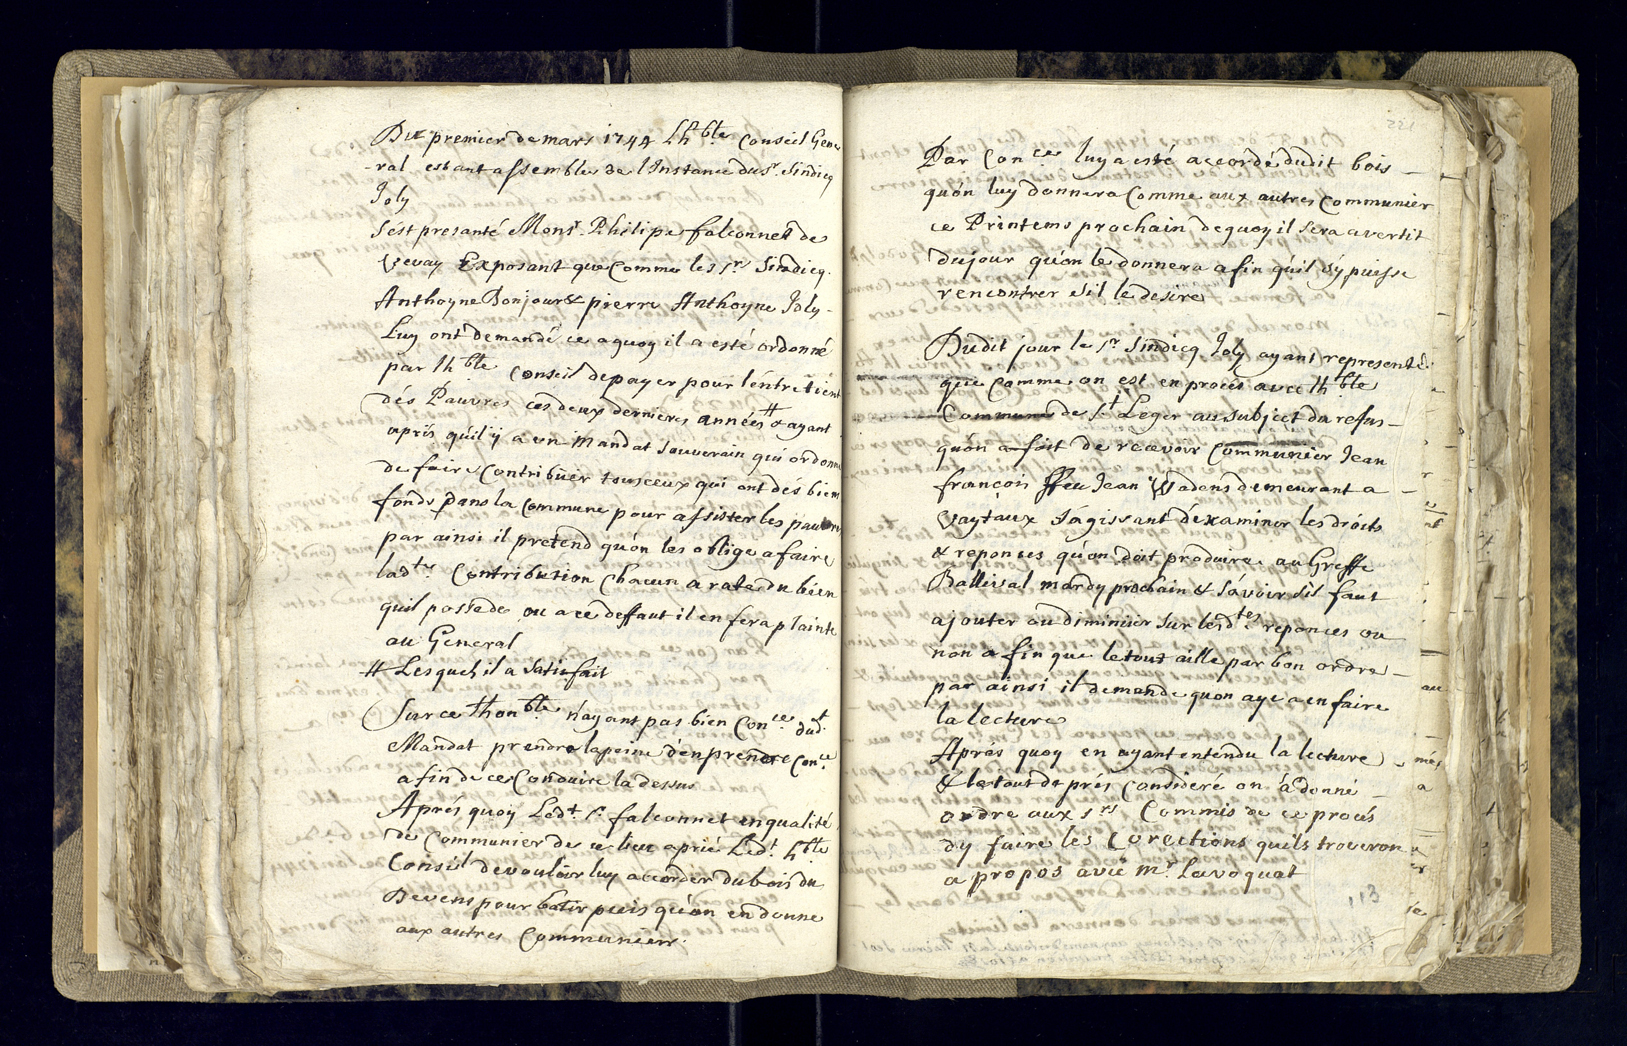 Du premier de mars 1744 Lh.ble Conseil Gene
-ral estant assemblé de l'Instance du Sr. Sindicq
Joly
S'est presanté Monsr. Philipe falconnet de
Vevay Exposant que Comme les Srs Sindicq.
Anthoyne Bonjour & pierre Anthoyne Joly-
Luy ont demandé ce a quoy il a esté ordonné
par lh.ble Conseil de payer pour l'entretient
dés Pauvres ces deux dernieres années # & ayant
apris quil y a un Mandat Souverain qui ordonne
de faire Contribuer tous ceux qui ont dés biens
fonds dans la Commune pour assister les pauvres
par ainsi il pretend qu'on les oblige a faire
ladte. Contribution Chacun a rate du bien
quil possede ou a ce deffaut il en fera plainte
au General
# Lesquels il a Satisfait
Sur ce Lhonble n'ayant pas bien Conce dudt.
Mandat prendra la peine d'en prendre Conce.
afin de ce Conduire la dessus
Aprés quoy Ledt. Sr. falconnet en qualité
de Communier de ce lieu a prié Ledt. h.ble
Conseil de vouloir luy accorder du bois du
Devens pour batir puis qu'on en donne
aux autres Communiers.
221
Par Conce luy a esté accordé dudit bois -
qu'on luy donnera Comme aux autres Communier
ce Printems prochain de quoy il Sera avertit
du jour qu'on le donnera afin qu'il s'y puisse
rencontrer s'il le desire
Dudit jour le Sr. Sindicq Joly ayant representé
que Comme on est en procés avec lh.ble
Commune de St Leger au subject du refus -
qu'on a fait de recevoir Communier Jean
françois ffeu Jean Wadens demeurant a -
Vaytaux S'agissant d'examiner les droits
& reponces qu'on doit produire au Greffe
Ballival mardy prochain & Savoir S'il faut
ajouter ou diminuer sur lesdtes reponces ou
non afin que le tout aille par bon ordre -
par ainsi il demande quon aye a en faire
la lecture
Apres quoy en ayant entendu la lecture -
& le tout de prés Consideré on á donné -
ordre aux Srs Commis de ce procés
dy faire les Corections quils troveron
a propos avec Mr. Lavoquat
113